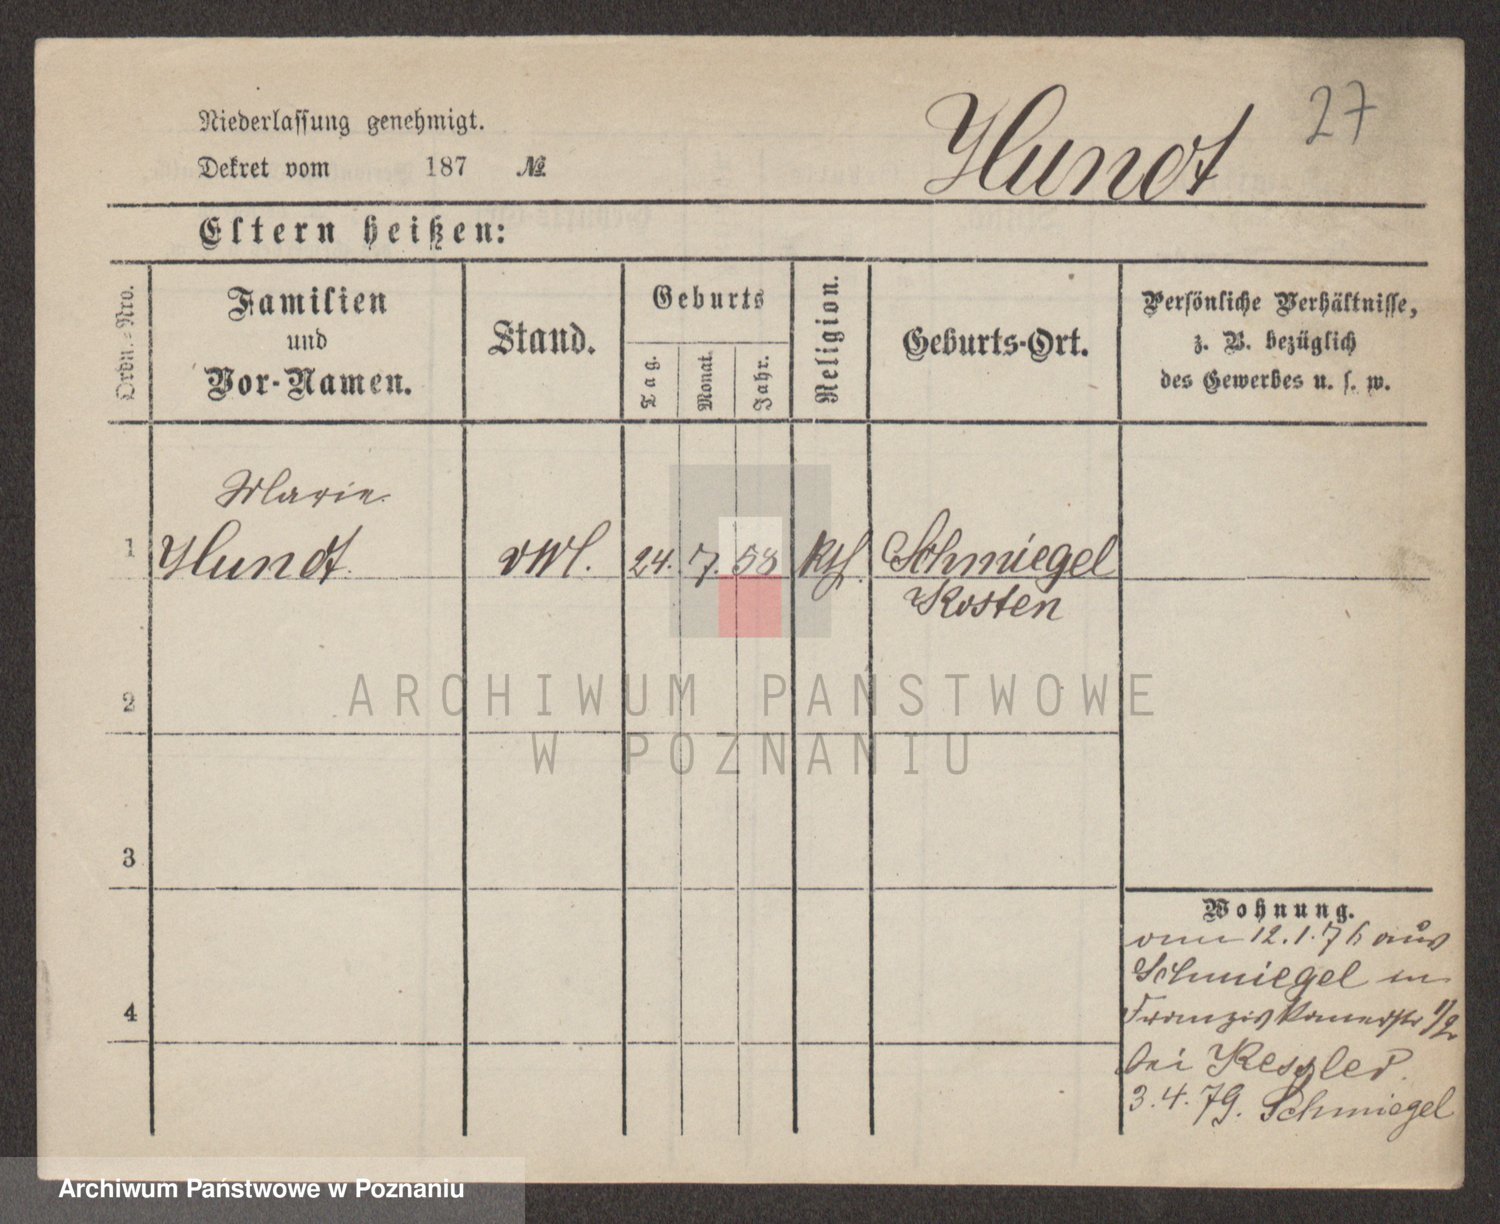 27
Hundt
Niederlassung genehmigt.
Dekret vom 187 №
Eltern heißen:
Ordn.-Nro.
Familien
und
Vor-Namen.
Stand.
Geburts
Tag.
Monat.
Jahr.
Religion.
Geburts-Ort.
Persönliche Verhältnisse,
z. B. bezüglich
des Gewerbes u. s. w.
Marie
1 Hundt. 24. 7. 58 kth. Schmiegel
Kosten
2
3
4
Wohnung.
12.1.76 aus
Schmiegel in
Franziskanerstr 1/2
bei Kessler.
3.4.79. Schmiegel
ARCHIWUM PAŃSTWOWE
W POZNANIU
Archiwum Państwowe w Poznaniu